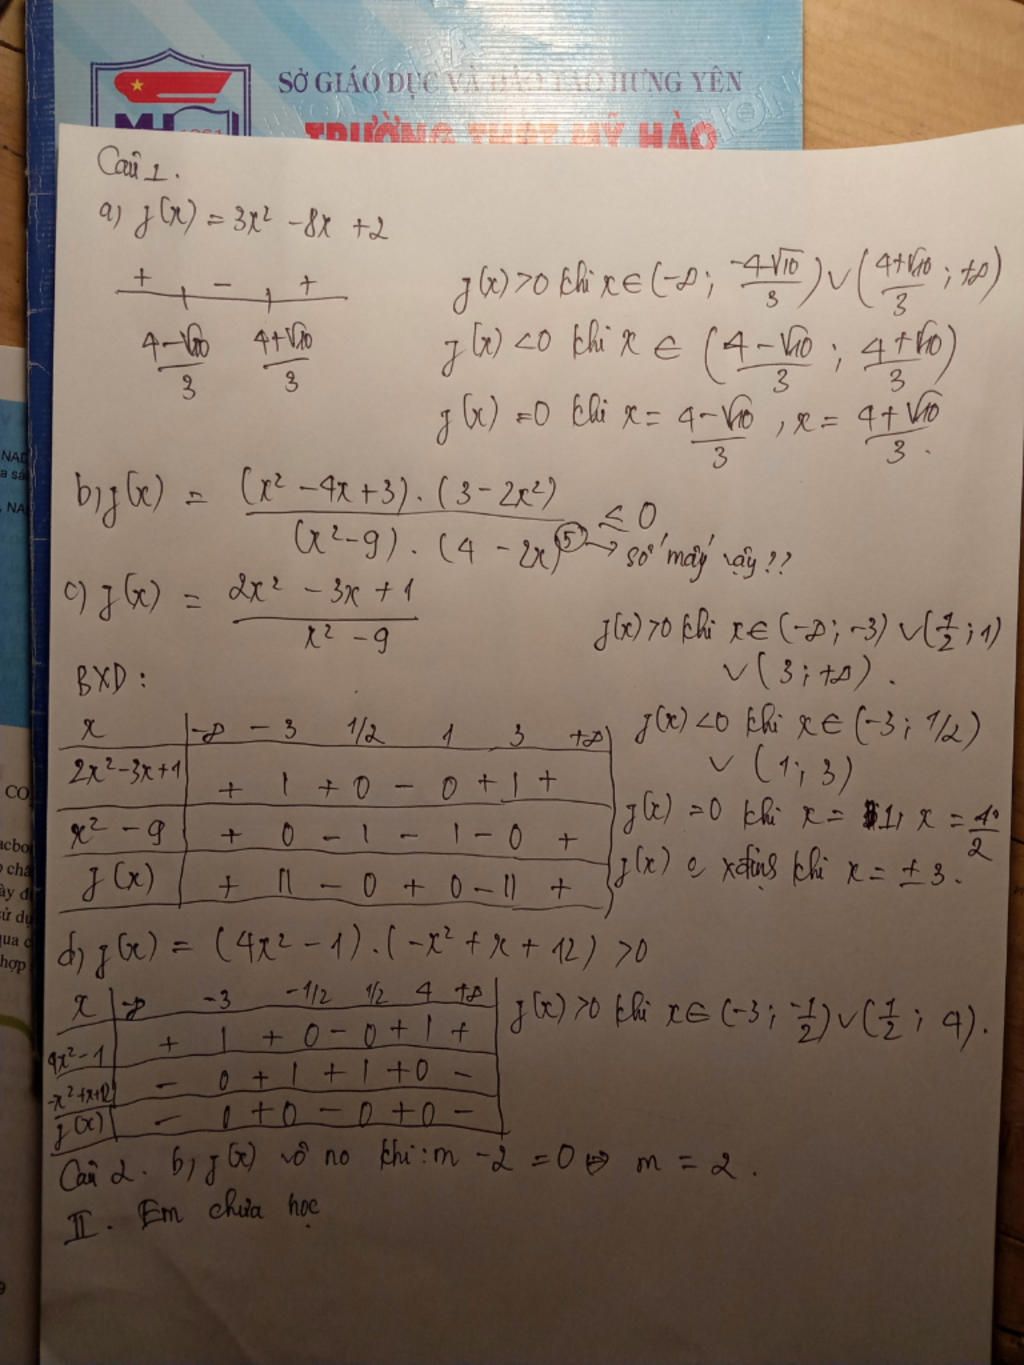 SỞ GIÁO DỤC VÀ ĐÀO TẠO HƯNG YÊN
TRƯỜNG THPT MỸ HÀO
Câu 1.
a) f(x) = 3x² - 8x + 2
+ - +
4-√10/3 4+√10/3
f(x) > 0 khi x ∈ (-∞; -4-√10/3) ∨ (4+√10/3; +∞)
f(x) < 0 khi x ∈ (4-√10/3; 4+√10/3)
f(x) = 0 khi x = 4-√10/3, x = 4+√10/3.
b) f(x) = (x² - 4x + 3).(3 - 2x²) / (x² - 9).(4 - 2x)⁵ ≤ 0
→ số mấy vậy??
c) f(x) = 2x² - 3x + 1 / x² - 9
BXD:
x -∞ -3 1/2 1 3 +∞
2x²-3x+1 + | + 0 - 0 + | +
x² - 9 + 0 - | - | - 0 +
f(x) + || - 0 + 0 - || +
f(x) > 0 khi x ∈ (-∞; -3) ∨ (1/2; 1)
∨ (3; +∞).
f(x) < 0 khi x ∈ (-3; 1/2)
∨ (1; 3)
f(x) = 0 khi x = 1, x = 1/2
f(x) xđịnh khi x = ± 3.
d) f(x) = (4x² - 1).(-x² + x + 12) > 0
x -∞ -3 -1/2 1/2 4 +∞
4x²-1 + | + 0 - 0 + | +
-x²+x+12 - 0 + | + | + 0 -
f(x) - 0 + 0 - 0 + 0 -
f(x) > 0 khi x ∈ (-3; -1/2) ∨ (1/2; 4).
Câu 2. b) f(x) vô no khi: m - 2 = 0 ⇔ m = 2.
II. Em chưa học